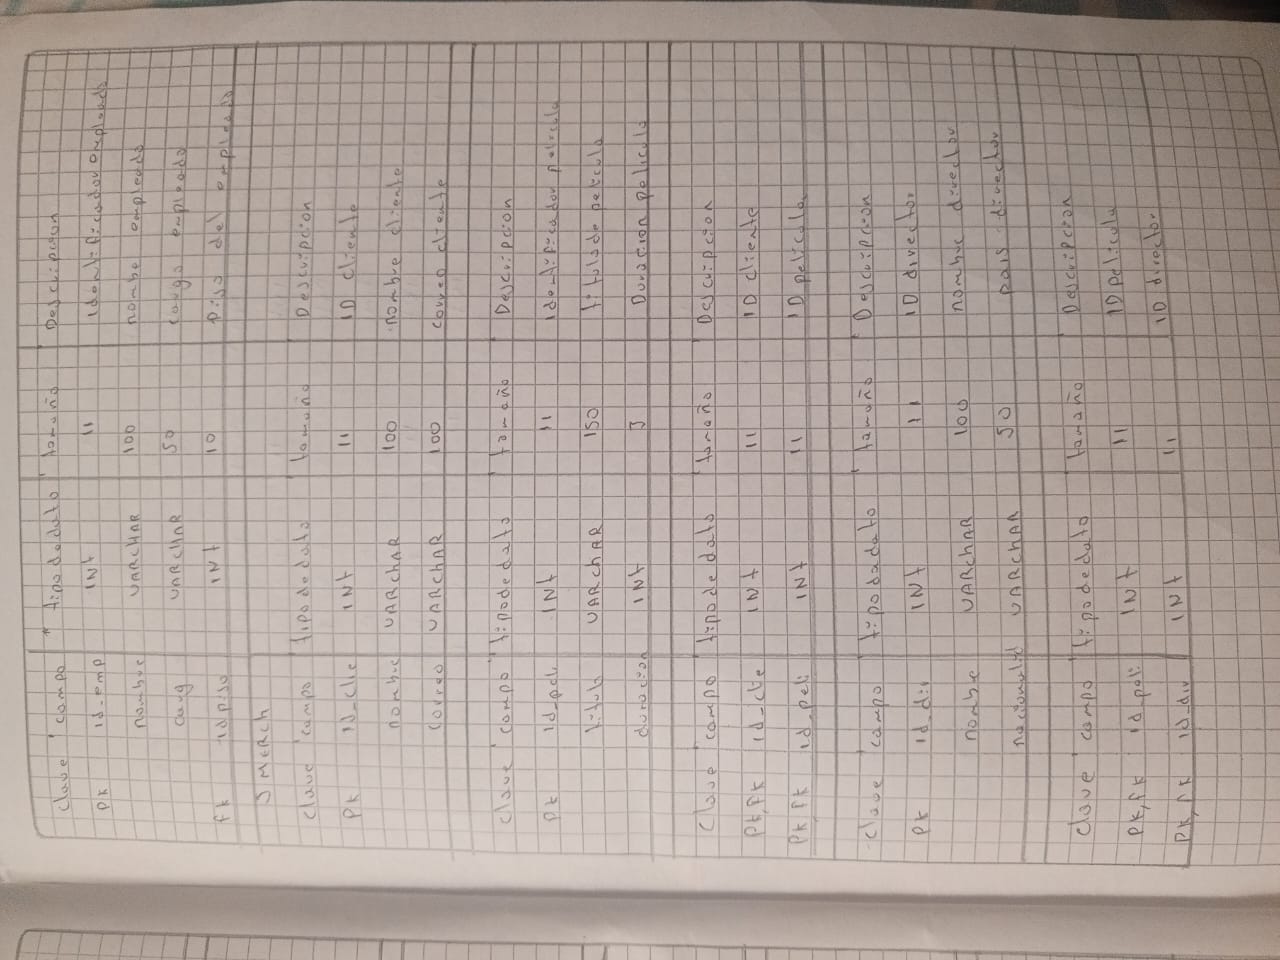 clave campo tipo de dato tamaño Descripcion
PK id_emp INt 11 Identificador empleado
nombre VARCHAR 100 nombre empleado
carg VARCHAR 50 cargo empleado
fk id piso INt 10 piso del empleado
MERCH
clave campo tipo de dato tamaño Descripcion
PK id_clie INt 11 ID cliente
nombre VARCHAR 100 nombre cliente
correo VARCHAR 100 correo cliente
clave campo tipo de dato tamaño Descripcion
PK id_peli INt 11 Identificador pelicula
titulo VARCHAR 150 titulo de pelicula
duracion INt 3 Duracion pelicula
clave campo tipo de dato tamaño Descripcion
PK, fk id_clie INt 11 ID cliente
PK, fk id_peli INt 11 ID pelicula
clave campo tipo dato tamaño Descripcion
PK id_dir INt 11 ID director
nombre VARCHAR 100 nombre director
nacionalid VARCHAR 50 pais director
clave campo tipo de dato tamaño Descripcion
PK, fk id_peli INt 11 ID pelicula
PK, fk id_dir INt 11 ID director